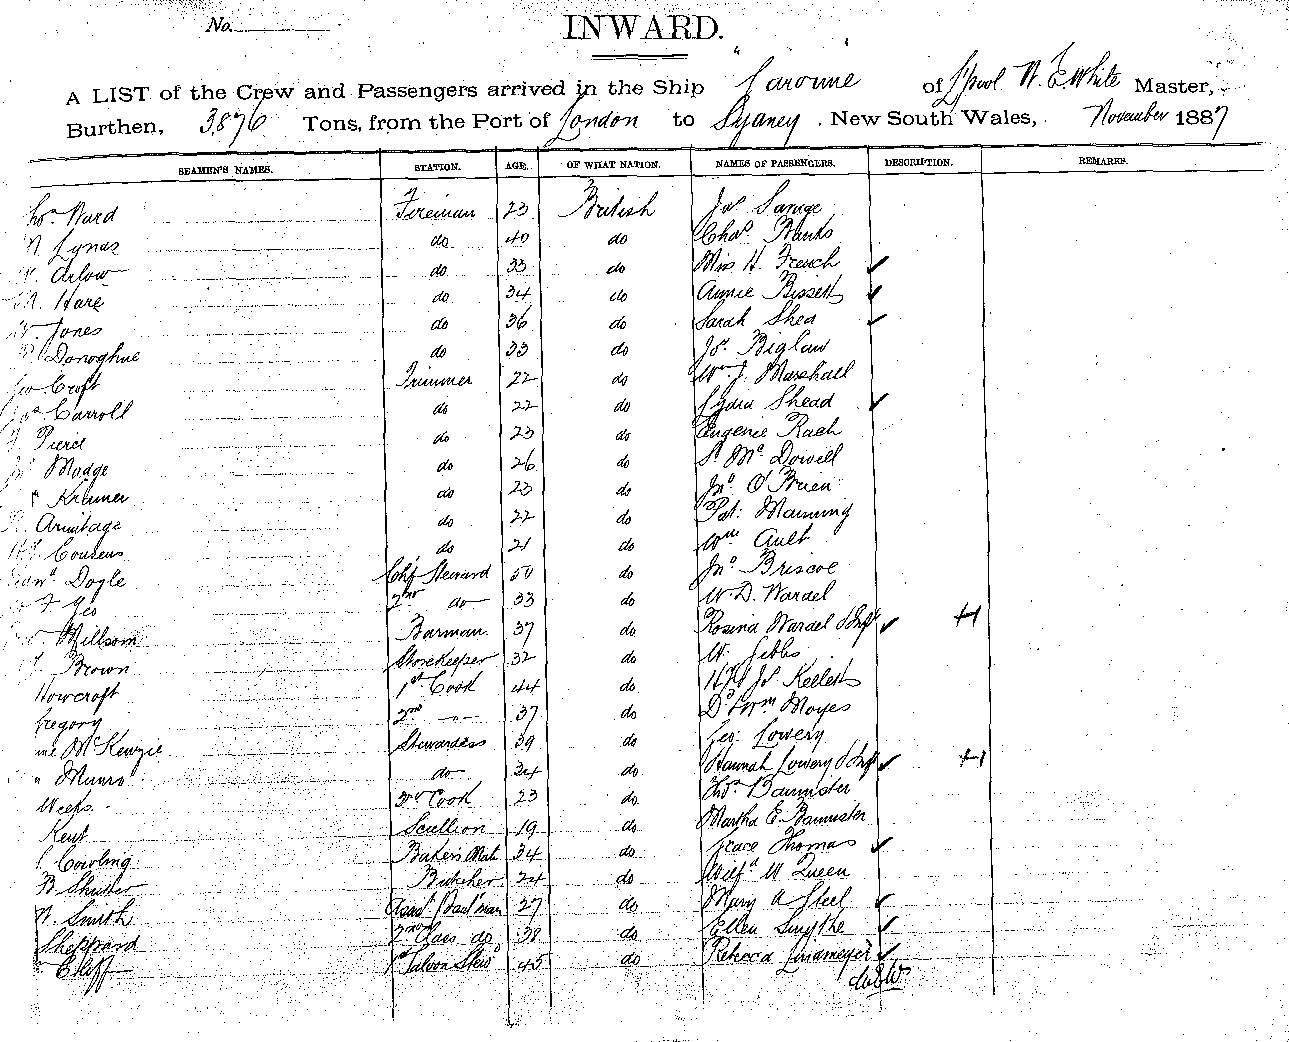 No.
INWARD.
A LIST of the Crew and Passengers arrived in the Ship "Caronne" of L'pool W. E. White Master,
Burthen, 3,876 Tons, from the Port of London to Sydney, New South Wales, November 1887
SEAMEN'S NAMES. STATION. AGE. OF WHAT NATION. NAMES OF PASSENGERS. DESCRIPTION. REMARKS.
Thos Ward Fireman 23 British Jas Savage
Lynas do 40 do Chas Banks
Arlow do 33 do Miss H. French ✓
Hare do 34 do Annie Bissett ✓
Jones do 36 do Sarah Shea ✓
Donoghue do 33 do Jos. Biglaw
Geo Croft Trimmer 22 do Wm J. Marshall
Carroll do 22 do Lydia Shead ✓
Pierce do 23 do Eugenie Rach
Madge do 26 do S. Mc Dowell
Kramer do 23 do Jno O'Brien
Armitage do 22 do Pat: Manning
Cousens do 21 do Wm Ault
Doyle Chf Steward 50 do Jno Briscoe
Yeo 2nd do 33 do W. D. Wardel
Millsom Barman. 37 do Rosina Wardel & Inft ✓ H
Brown Storekeeper 32 do W. Gibbs
Howcroft 1st Cook 44 do Kellett
Gregory 2nd -"- 37 do Moyes
Mc Kenzie Stewardess 39 do Geo: Lowery
Munro do 34 do Hannah Lowery & Inft ✓ H
Weeks Cook 23 do Thos Bannister
Kent Scullion 19 do Martha E. Bannister
Cowling Bakers Mate 34 do Grace Thomas ✓
B Shutter Butcher 24 do Queen
W. Smith 27 do Mary A Steel ✓
Sheppard 2nd Class do 38 do Ellen Smythe ✓
Cliff 1st Saloon Stewd 45 do Rebecca Lindmeyer ✓